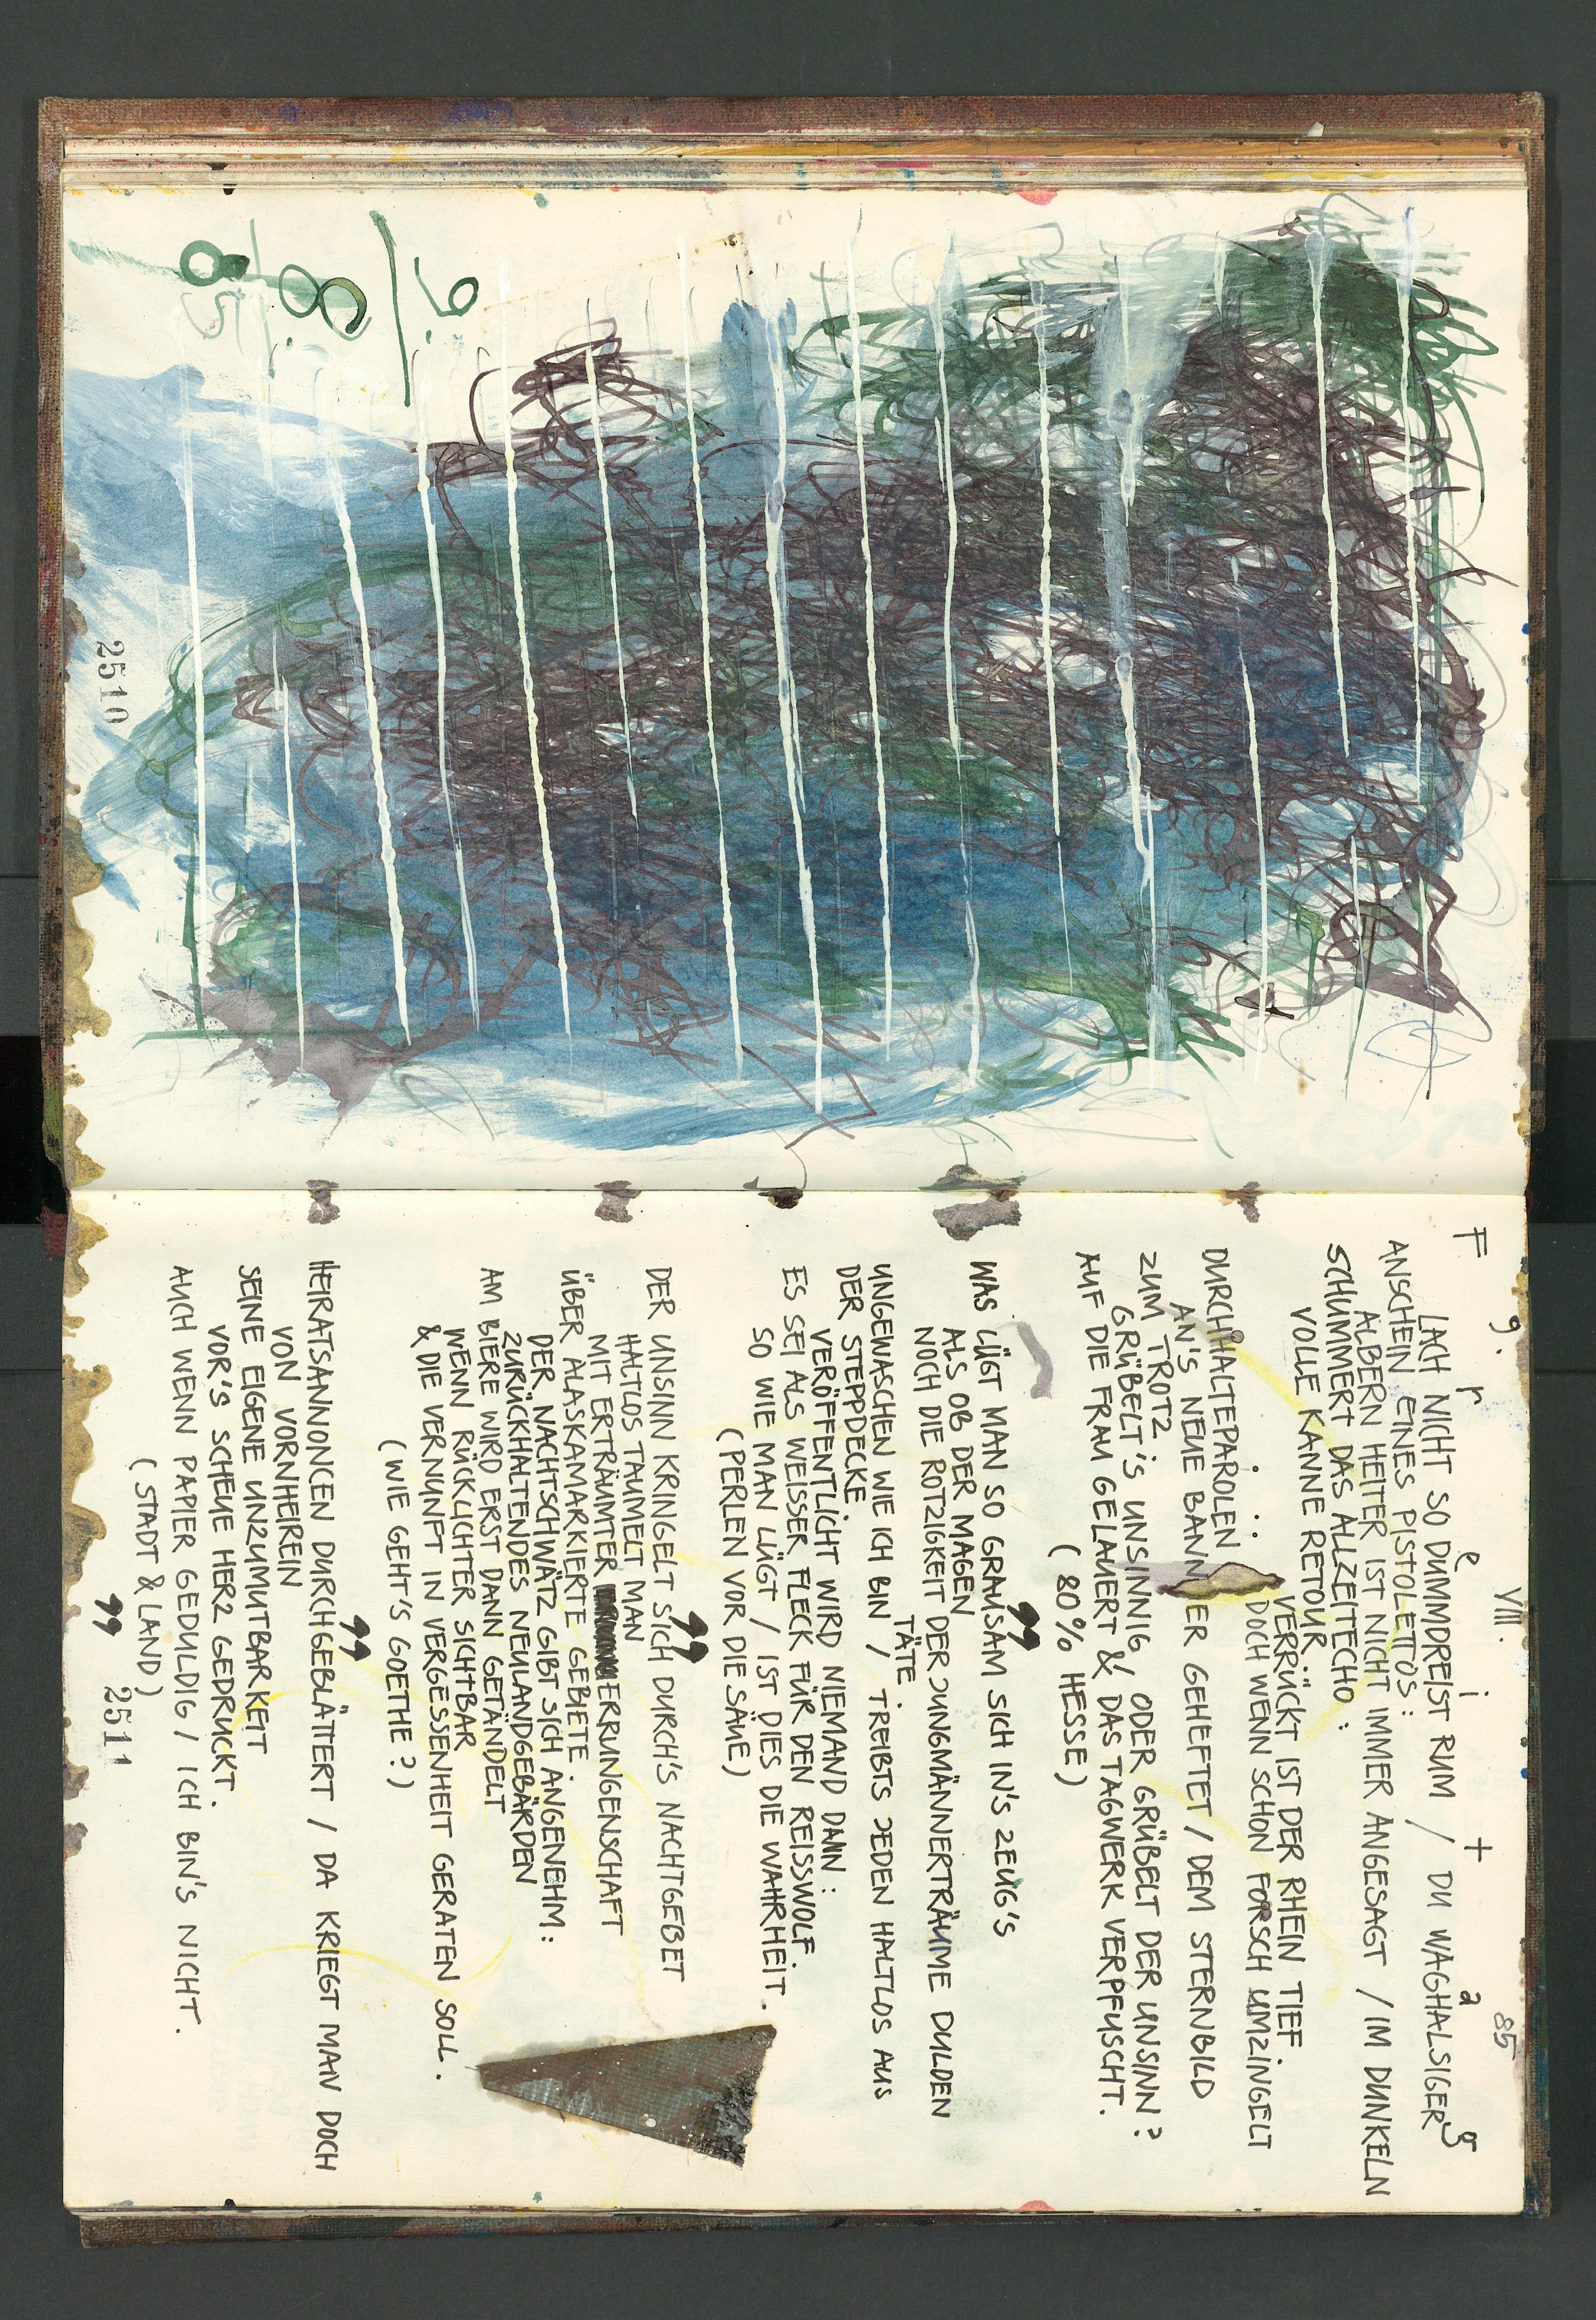 9./
8./
85
2510
9. VIII. 85
F r e i t a g
LACH NICHT SO DUMMDREIST RUM / DU WAGHALSIGER
ANSCHEIN EINES PISTOLETTOS :
ALBERN HEITER IST NICHT IMMER ANGESAGT / IM DUNKELN
SCHUMMERT DAS ALLZEITECHO :
VOLLE KANNE RETOUR
VERRÜCKT IST DER RHEIN TIEF.
DOCH WENN SCHON FORSCH UMZINGELT
DURCHHALTEPAROLEN
AN'S NEUE BANNER GEHEFTET / DEM STERNBILD
ZUM TROTZ
GRÜBELT'S UNSINNIG ODER GRÜBELT DER UNSINN ?
AUF DIE FRAU GELAUERT & DAS TAGWERK VERPFUSCHT.
( 80% HESSE )
"
WAS LÜGT MAN SO GRAUSAM SICH IN'S ZEUG'S
ALS OB DER MAGEN
NOCH DIE ROTZIGKEIT DER JUNGMÄNNERTRÄUME DULDEN
TÄTE.
UNGEWASCHEN WIE ICH BIN / TREIBTS JEDEN HALTLOS AUS
DER STEPPDECKE
VERÖFFENTLICHT WIRD NIEMAND DANN :
ES SEI ALS WEISSER FLECK FÜR DEN REISSWOLF.
SO WIE MAN LÜGT / IST DIES DIE WAHRHEIT.
( PERLEN VOR DIE SÄUE )
"
DER UNSINN KRINGELT SICH DURCH'S NACHTGEBET
HALTLOS TAUMELT MAN
MIT ERTRÄUMTER ERRUNGENSCHAFT
ÜBER ALASKAMARKIERTE GEBIETE.
DER NACHTSCHWÄTZ GIBT SICH ANGENEHM :
ZURÜCKHALTENDES NEULANDGEBÄRDEN
AM BIERE WIRD ERST DANN GETÄNDELT
WENN RÜCKLICHTER SICHTBAR
& DIE VERNUNFT IN VERGESSENHEIT GERATEN SOLL.
( WIE GEHT'S GOETHE ? )
"
HEIRATSANNONCEN DURCHGEBLÄTTERT / DA KRIEGT MAN DOCH
VON VORNHEREIN
SEINE EIGENE UNZUMUTBARKEIT
VOR'S SCHEUE HERZ GEDRUCKT.
AUCH WENN PAPIER GEDULDIG / ICH BIN'S NICHT.
( STADT & LAND )
"
2511